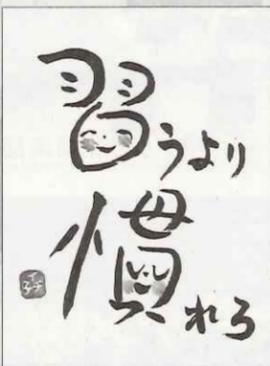 習うより
慣れろ